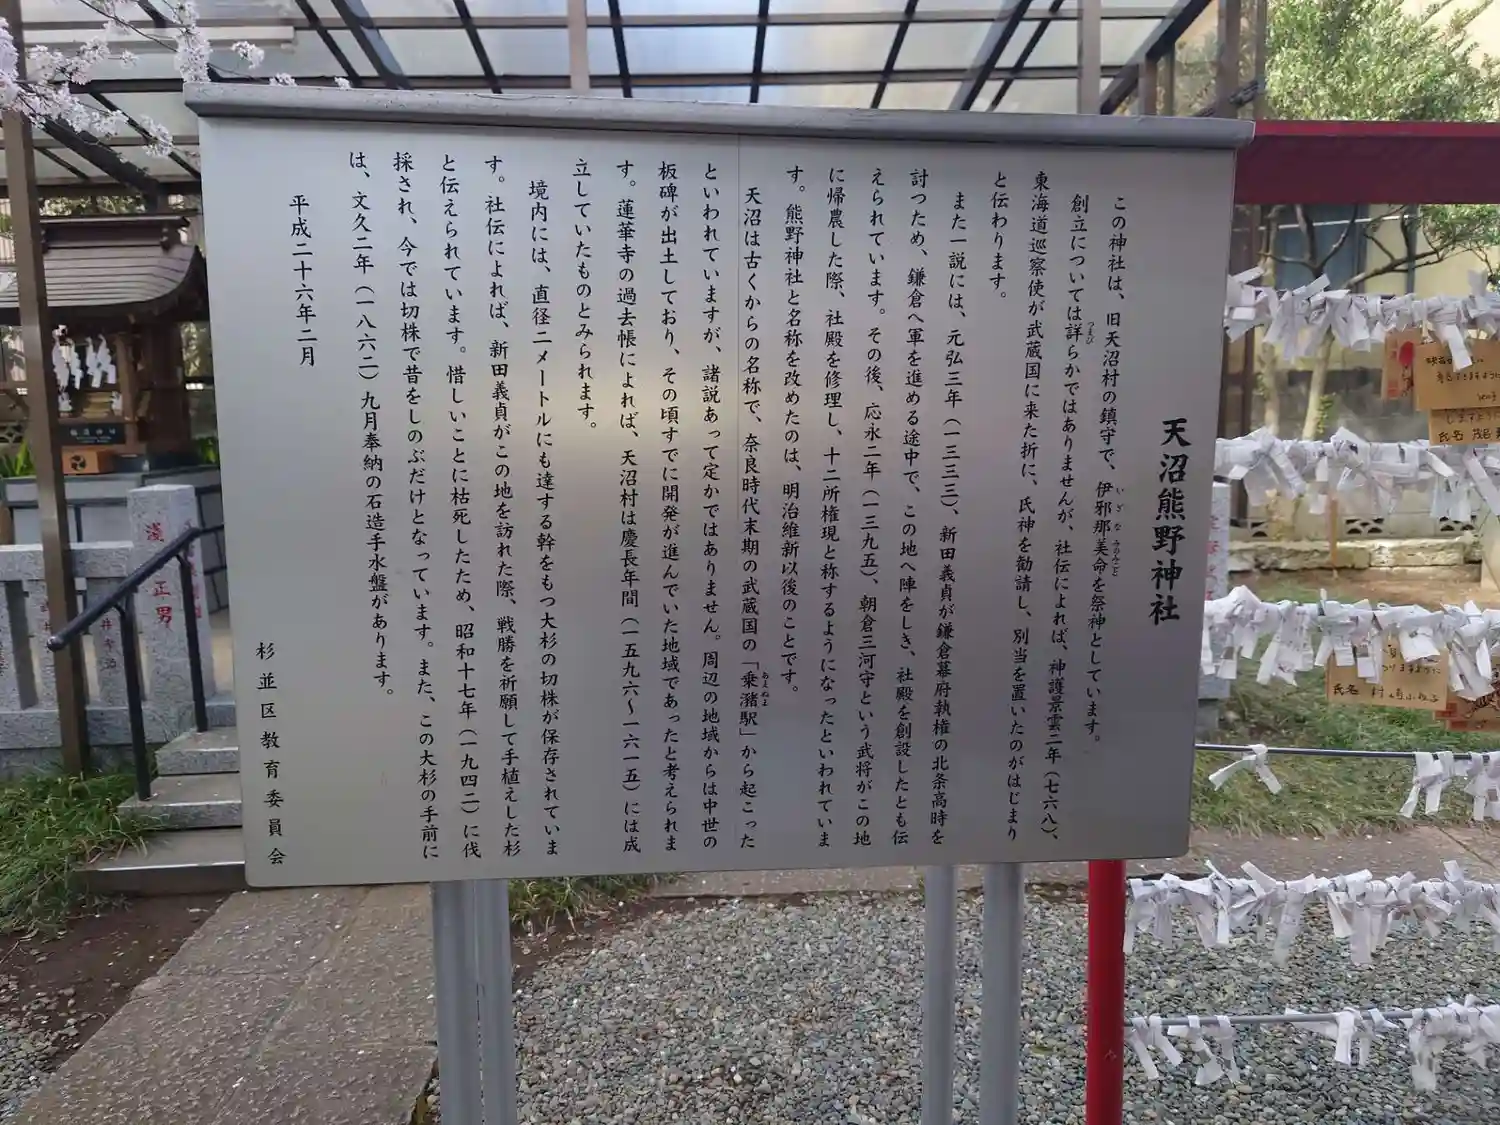 天沼熊野神社
この神社は、旧天沼村の鎮守で、伊邪那美命を祭神としています。
創立については詳らかではありませんが、社伝によれば、神護景雲二年（七六八）、
東海道巡察使が武蔵国に来た折に、氏神を勧請し、別当を置いたのがはじまり
と伝わります。
また一説には、元弘三年（一三三三）、新田義貞が鎌倉幕府執権の北条高時を
討つため、鎌倉へ軍を進める途中で、この地へ陣をしき、社殿を創設したとも伝
えられています。その後、応永二年（一三九五）、朝倉三河守という武将がこの地
に帰農した際、社殿を修理し、十二所権現と称するようになったといわれていま
す。熊野神社と名称を改めたのは、明治維新以後のことです。
天沼は古くからの名称で、奈良時代末期の武蔵国の「乗瀦駅」から起こった
といわれていますが、諸説あって定かではありません。周辺の地域からは中世の
板碑が出土しており、その頃すでに開発が進んでいた地域であったと考えられま
す。蓮華寺の過去帳によれば、天沼村は慶長年間（一五九六～一六一五）には成
立していたものとみられます。
境内には、直径二メートルにも達する幹をもつ大杉の切株が保存されていま
す。社伝によれば、新田義貞がこの地を訪れた際、戦勝を祈願して手植えした杉
と伝えられています。惜しいことに枯死したため、昭和十七年（一九四二）に伐
採され、今では切株で昔をしのぶだけとなっています。また、この大杉の手前に
は、文久二年（一八六二）九月奉納の石造手水盤があります。
平成二十六年二月
杉並区教育委員会